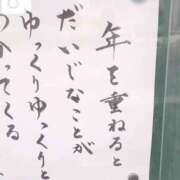 年を重ねると
だいじなことが
ゆっくりゆっくりと
わかってくる